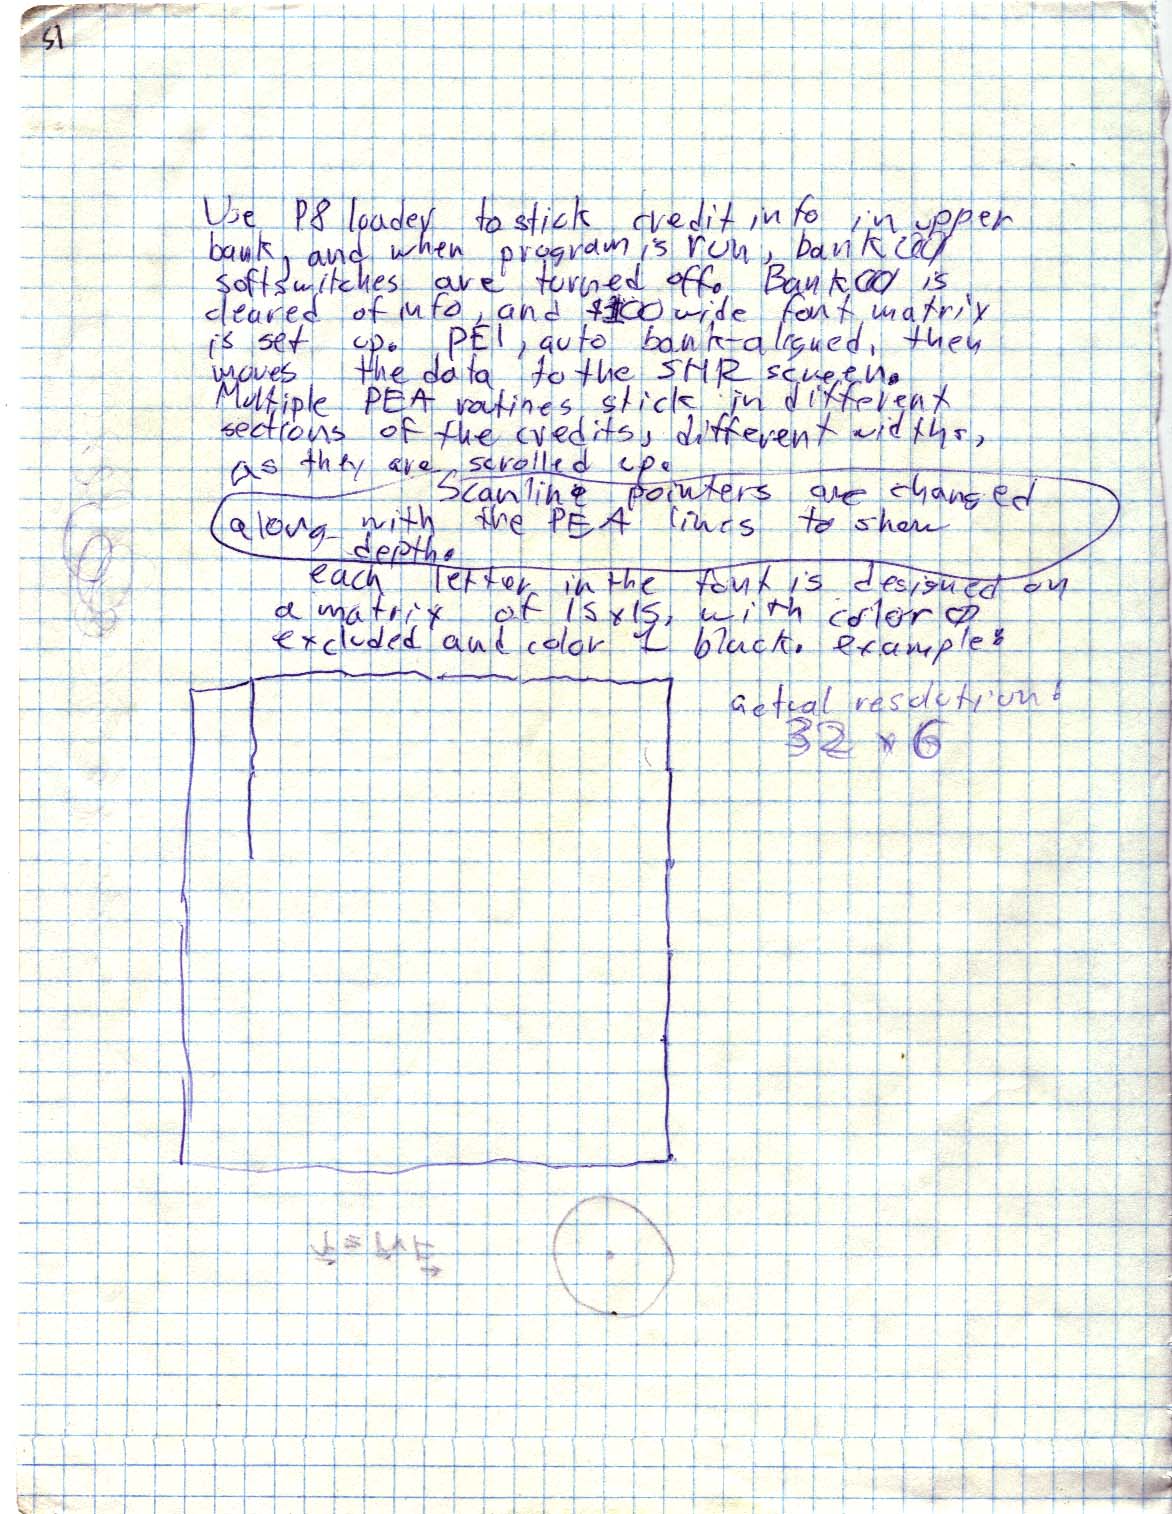 51
Use P8 loader to stick credit info in upper
bank, and when program is run, bank 00
softswitches are turned off. Bank 00 is
cleared of info, and $100 wide font matrix
is set up. PEI, auto bank-aligned, then
moves the data to the SHR screen.
Multiple PEA routines stick in different
sections of the credits, different widths,
as they are scrolled up.
Scanline pointers are changed
along with the PEA lines to show
depth.
each letter in the font is designed on
a matrix of 15x15, with color 0
excluded and color 1 black. example:
actual resolution:
32 x 6